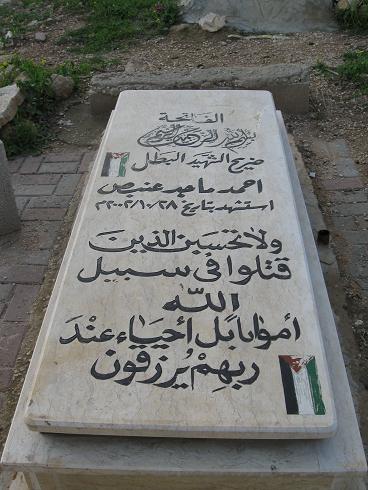 الفاتحة
بسم الله الرحمن الرحيم
ضريح الشهيد البطل
احمد ماجد عنبص
استشهد بتاريخ ٢٠٠٢/١٠/٢٨م
ولا تحسبن الذين
قتلوا في سبيل
الله
أمواتا بل أحياء عند
ربهم يرزقون